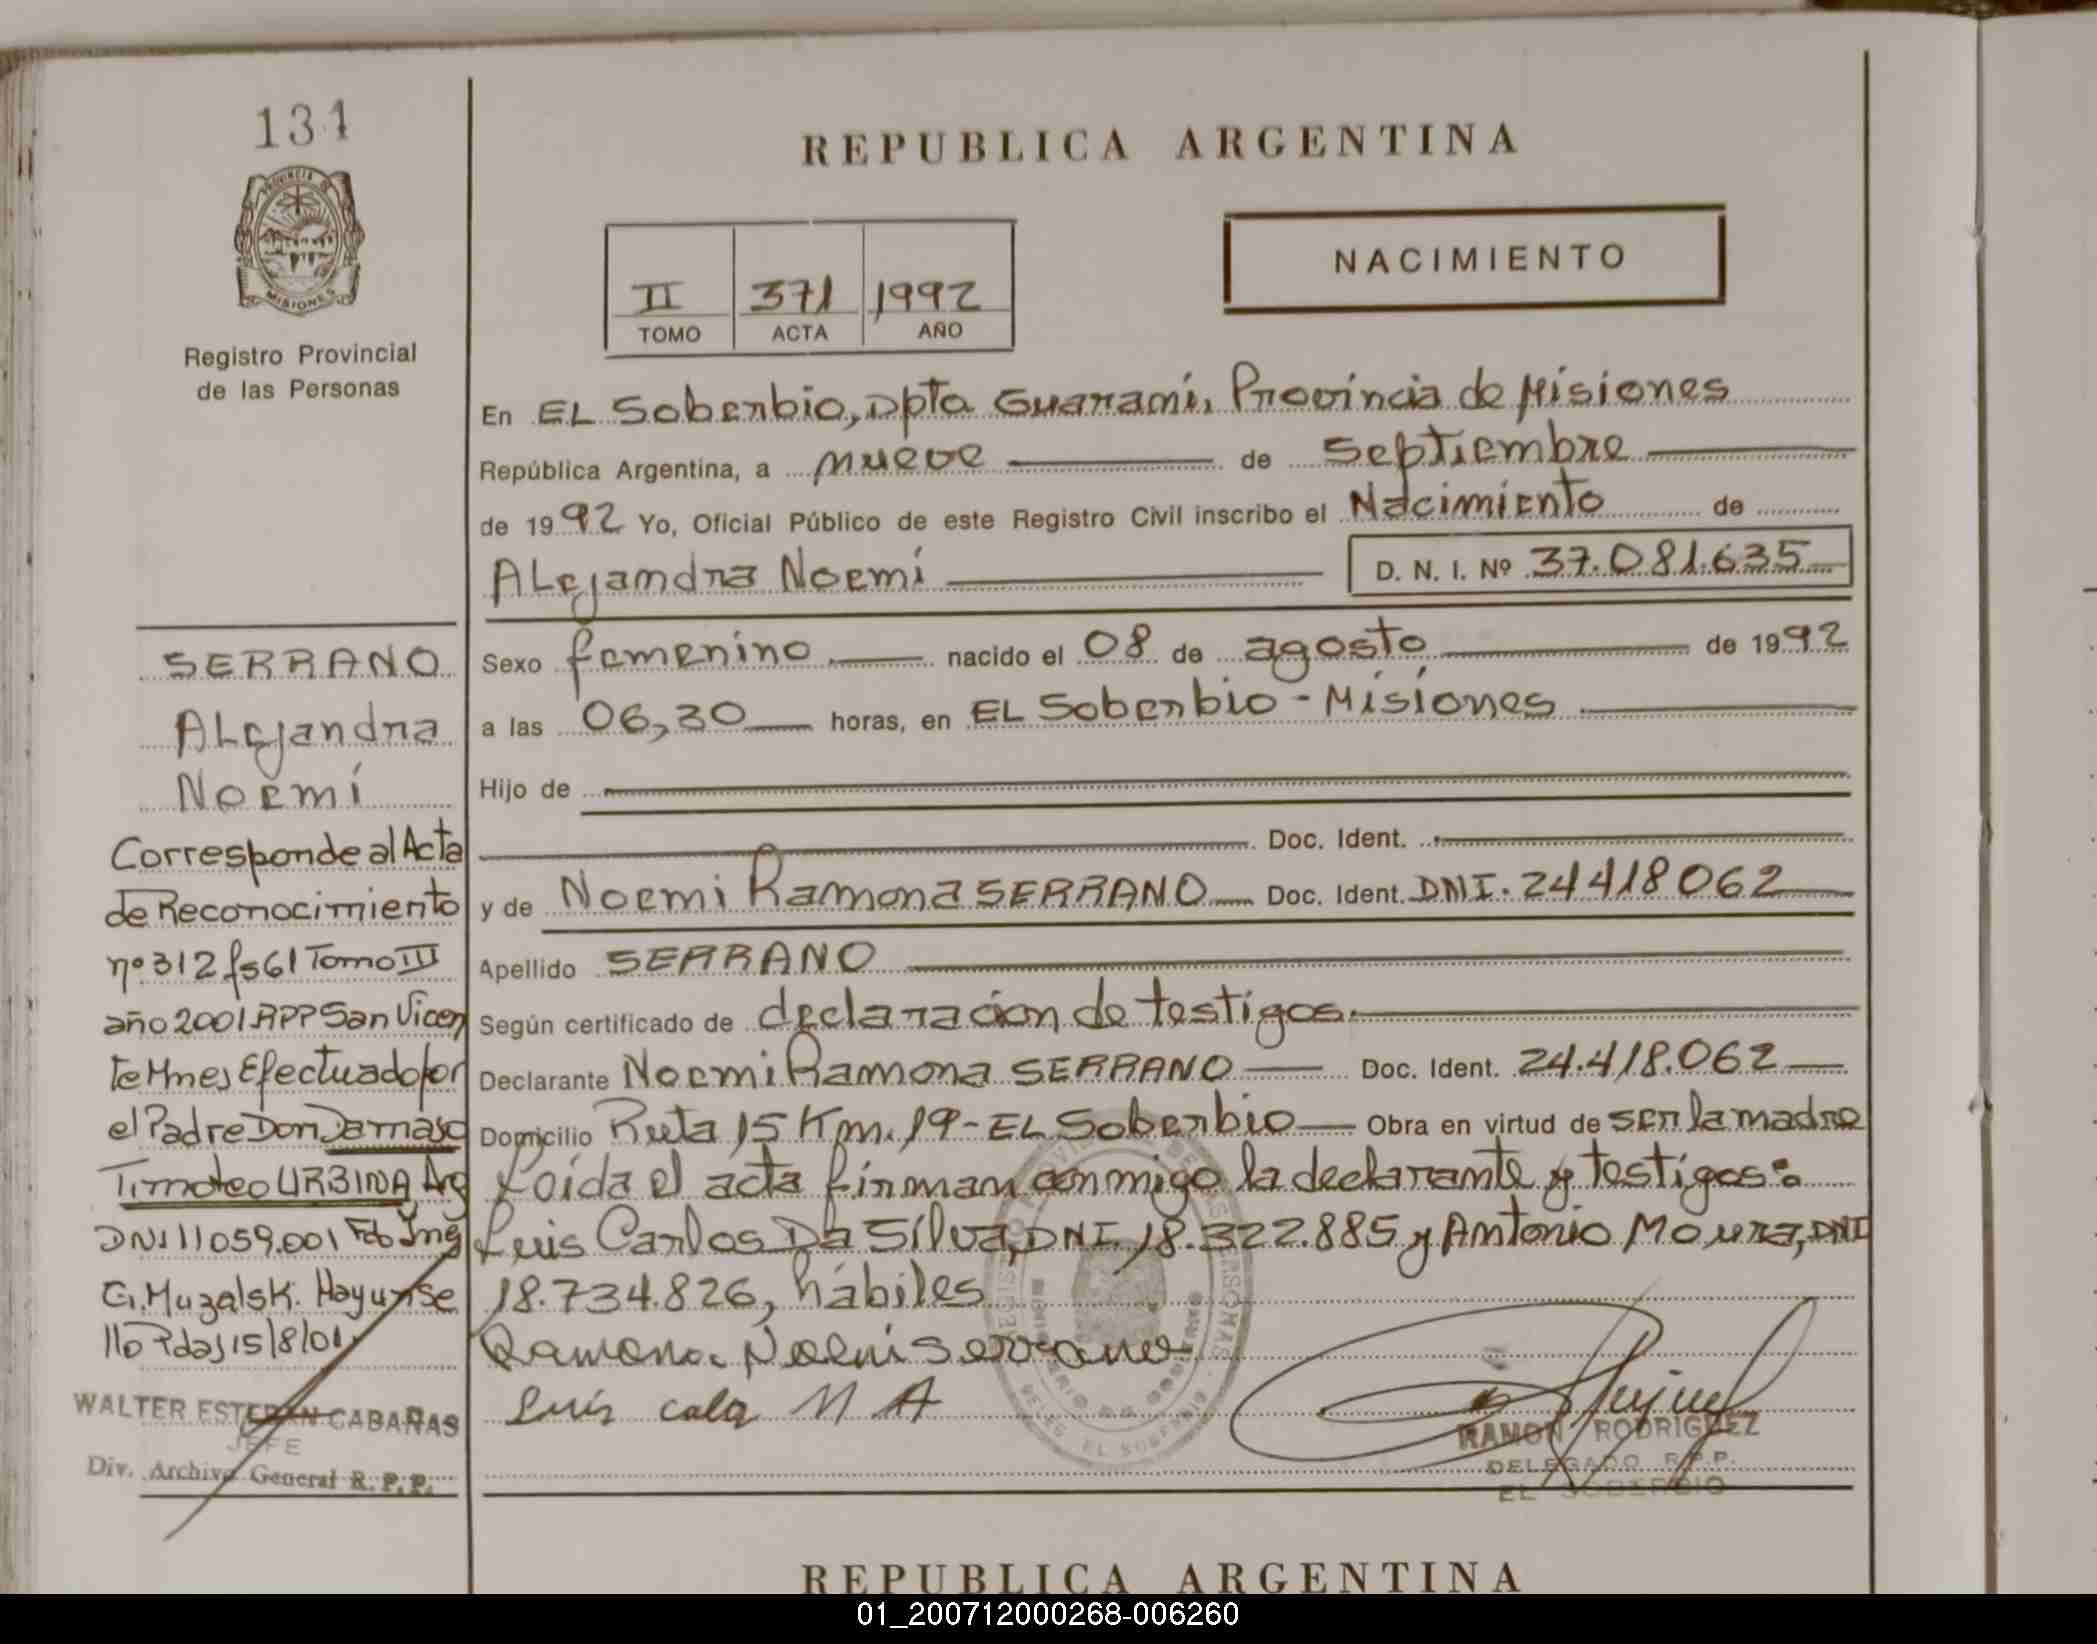 131
PROVINCIA DE
MISIONES
Registro Provincial
de las Personas
SERRANO
Alejandra
Noemí
Corresponde al Acta
de Reconocimiento
nº 312 fs 61 Tomo III
año 2001 RPP San Vicen
te Mnes Efectuado por
el Padre Don Damaso
Timoteo URBINA Arg
DNI 11059.001 Fdo Ing
G. Muzalsk. Hay un Se
llo Pdas 15/8/01
WALTER ESTEBAN CABAÑAS
JEFE
Div. Archivo General R. P. P.
REPUBLICA ARGENTINA
II 371 1992
TOMO ACTA AÑO
NACIMIENTO
En EL Soberbio, Dpto Guaraní, Provincia de Misiones
República Argentina, a nueve de Septiembre
de 1992 Yo, Oficial Público de este Registro Civil inscribo el Nacimiento de
ALejandra Noemí D. N. I. Nº 37.081.635
Sexo femenino nacido el 08 de agosto de 1992
a las 06,30 horas, en EL Soberbio - Misiones
Hijo de
Doc. Ident.
y de Noemi Ramona SERRANO Doc. Ident. DNI. 24418062
Apellido SERRANO
Según certificado de declaración de testigos.
Declarante Noemi Ramona SERRANO Doc. Ident. 24.418.062
Domicilio Ruta 15 Km. 19 - EL Soberbio Obra en virtud de ser la madre
Loída el acta firman conmigo la declarante y testigos:
Luis Carlos Da Silva, DNI. 18.322.885 y Antonio Moura, DNI
18.734.826, hábiles
Ramona Noemi Serrano
Luis cala M A
RAMON RODRIGUEZ
DELEGADO R.P.P.
EL SOBERBIO
REPUBLICA ARGENTINA
01_200712000268-006260